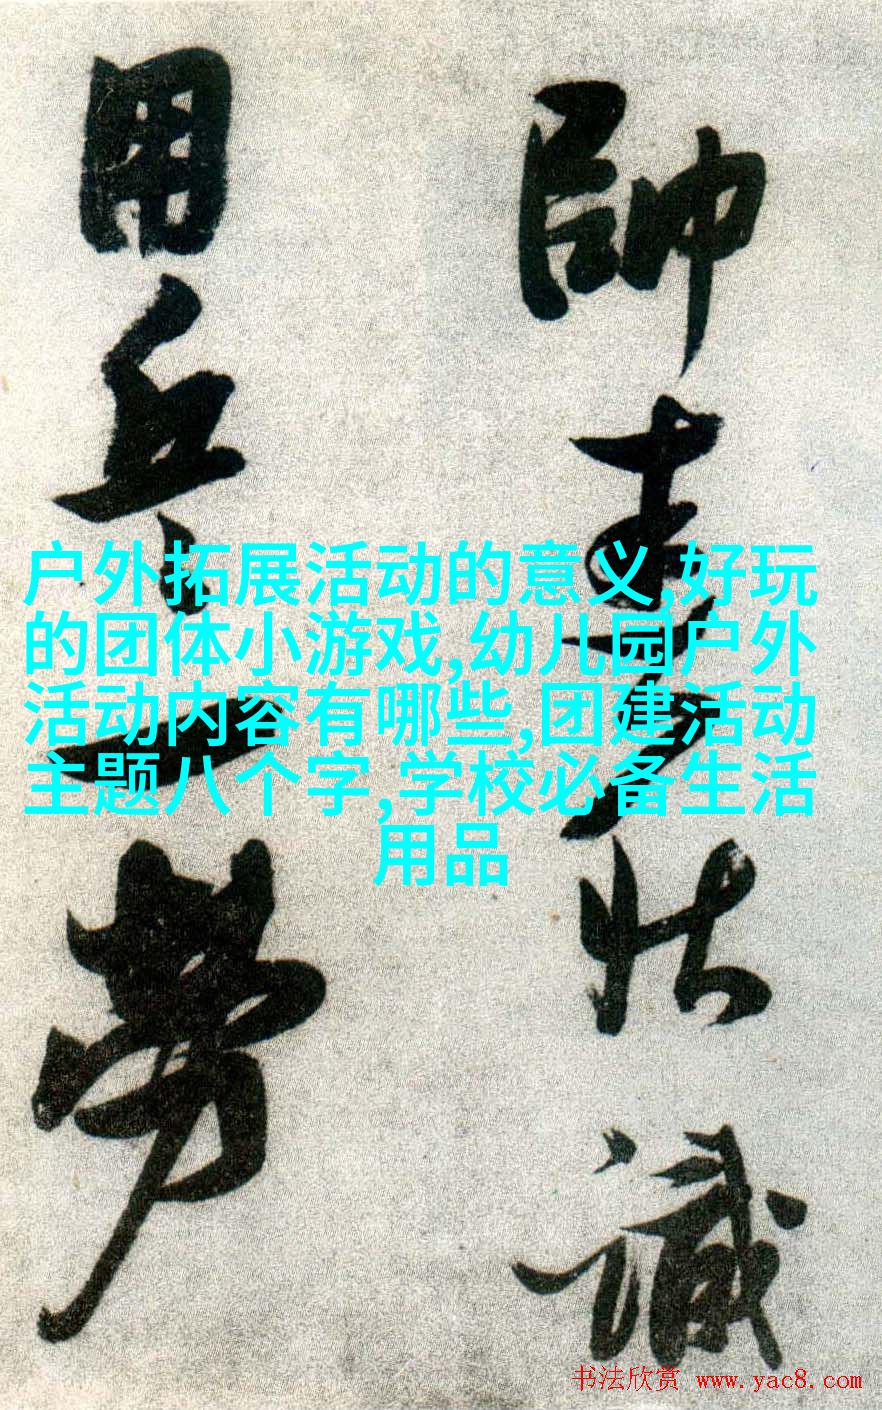 帥走之狀識
用兵一勞
户外拓展活动的意义,好玩
的团体小游戏,幼儿园户外
活动内容有哪些,团建活动
主题八个字,学校必备生活
用品
书法欣赏 www.yac8.com